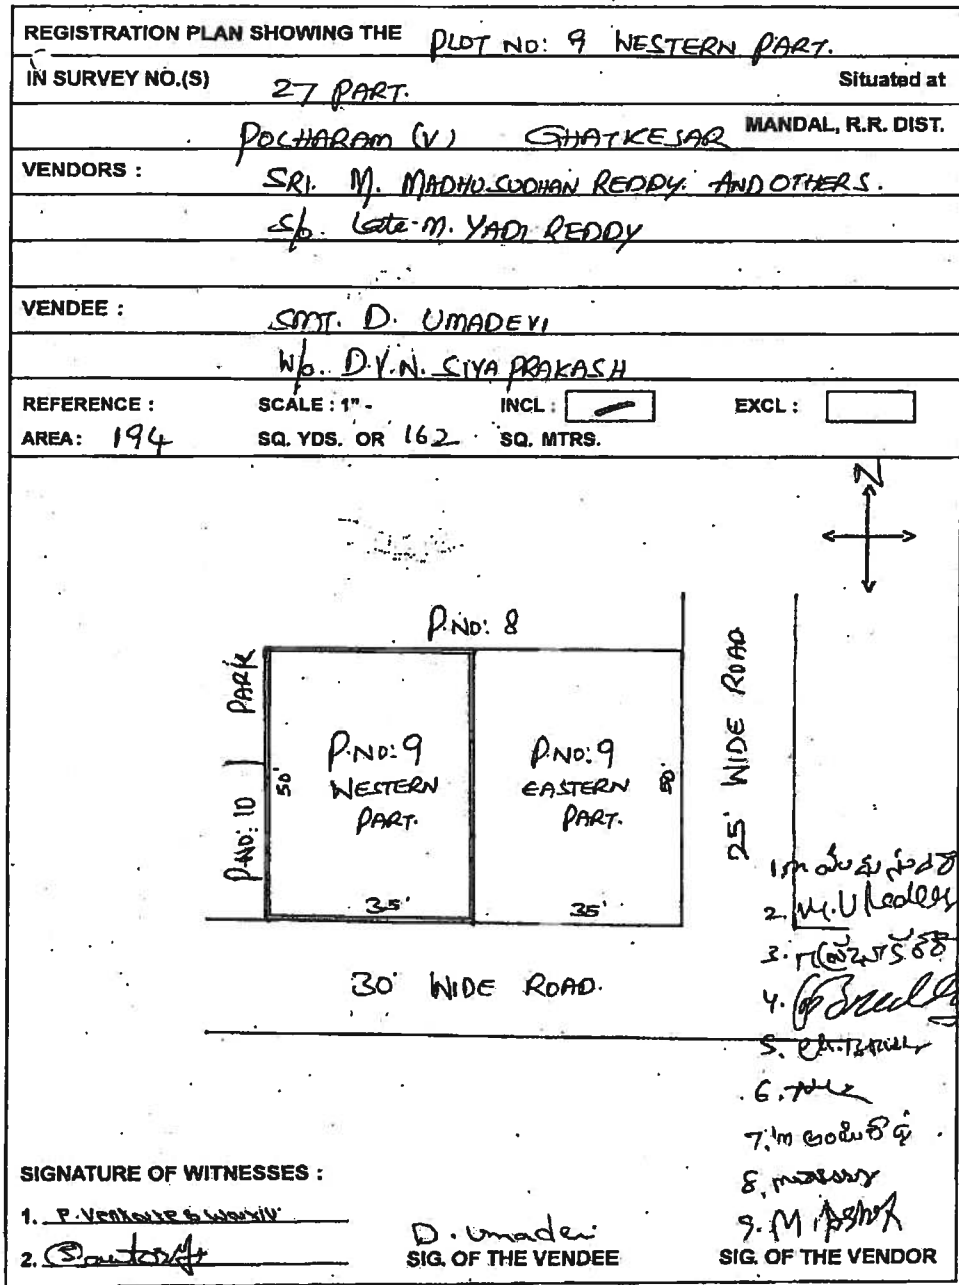 REGISTRATION PLAN SHOWING THE PLOT NO: 9 WESTERN PART.
IN SURVEY NO.(S) 27 PART. Situated at
POCHARAM (V) GHATKESAR MANDAL, R.R. DIST.
VENDORS : SRI. M. MADHUSUDHAN REDDY. AND OTHERS.
S/o. Late. M. YADI REDDY
VENDEE : SMT. D. UMADEVI
W/o. D.V.N. SIVA PRAKASH
REFERENCE : SCALE : 1" - INCL : EXCL :
AREA: 194 SQ. YDS. OR 162 SQ. MTRS.
N
P.NO: 8
PARK
P.NO: 10
50'
P.NO: 9
WESTERN
PART.
35'
P.NO: 9
EASTERN
PART.
50'
35'
25' WIDE ROAD
30' WIDE ROAD.
1.
2. M. U Reddy
3.
4.
5.
6.
7.
8.
9. M. Ashok
SIGNATURE OF WITNESSES :
1. P. Venkates
2.
D. Umadevi
SIG. OF THE VENDEE
SIG. OF THE VENDOR